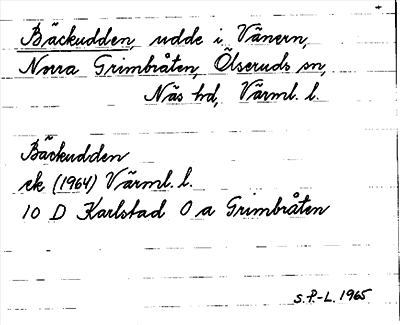 Bäckudden, udde i Vänern,
Norra Grimbråten, Ölseruds sn,
Näs hd, Värml. l.
Bäckudden
ek (1964) Värml. l.
10 D Karlstad 0 a Grimbråten
S.P.-L. 1965